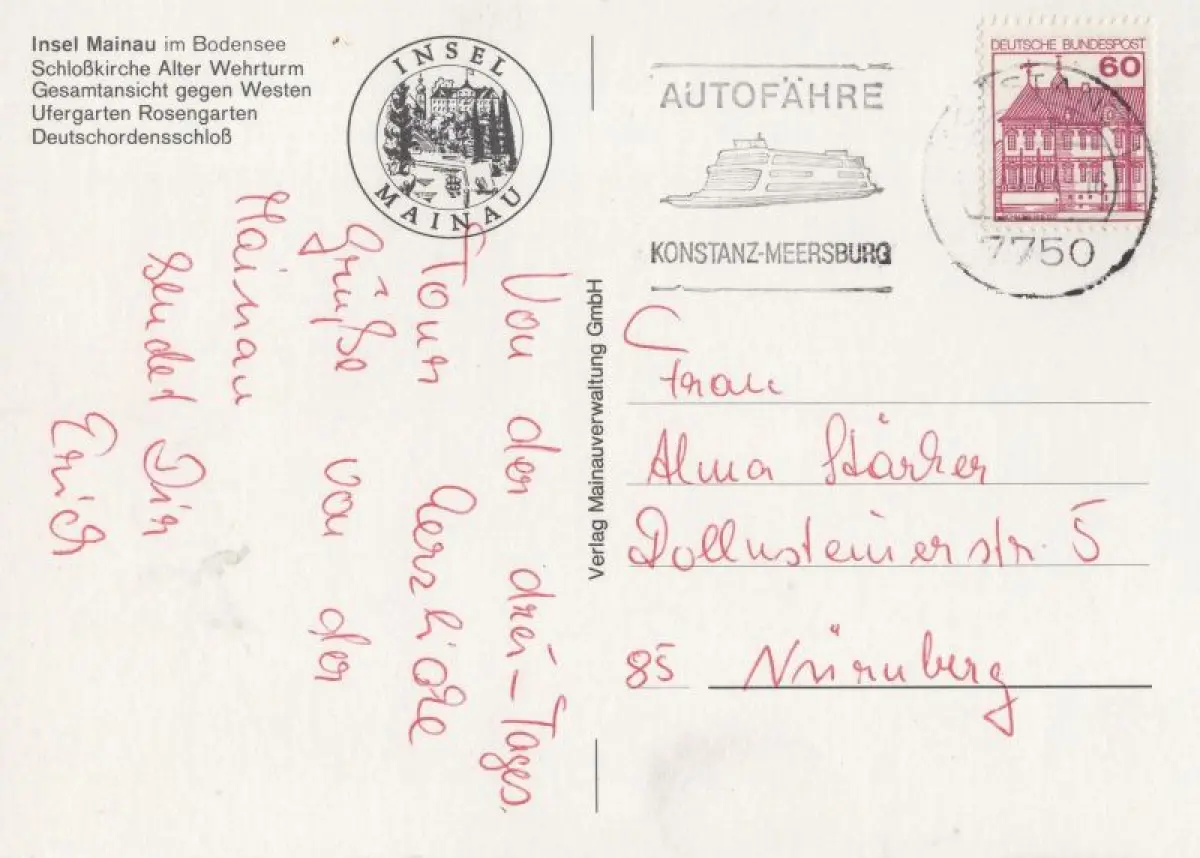 Insel Mainau im Bodensee
Schloßkirche Alter Wehrturm
Gesamtansicht gegen Westen
Ufergarten Rosengarten
Deutschordensschloß
INSEL
MAINAU
AUTOFÄHRE
KONSTANZ-MEERSBURG
DEUTSCHE BUNDESPOST
60
7750
Von der drei-Tages.
Tour herzliche
Grüße von der
Mainau
sendet Dir
Erich
Verlag Mainauverwaltung GmbH
Frau
Alma Stärker
Dollnsteinerstr. 5
85 Nürnberg